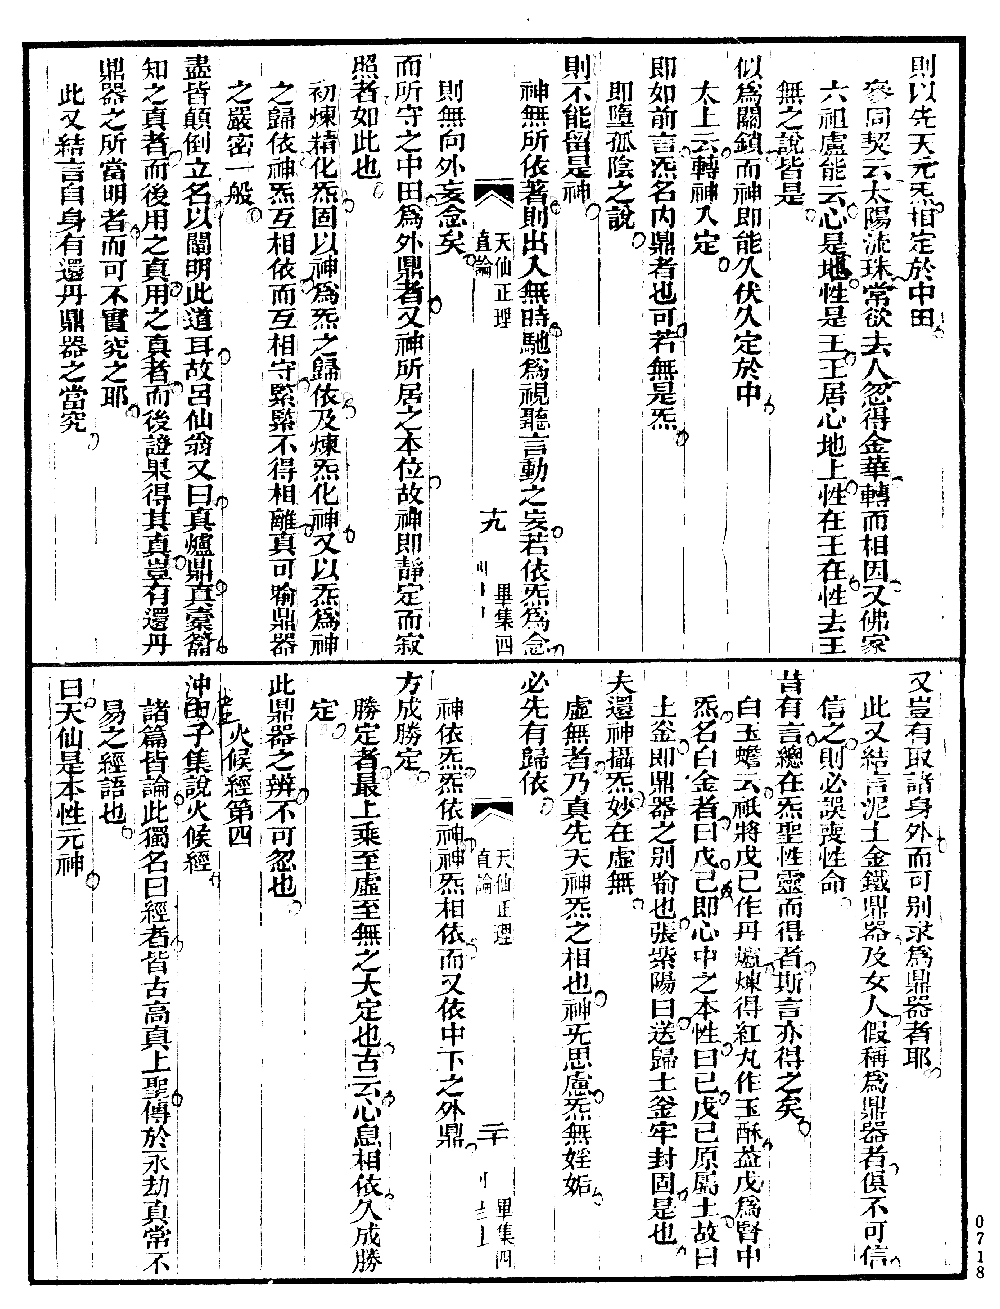 則以先天元炁相定於中田
參同契云太陽流珠常欲去人忽得金華轉而相因又佛家
六祖盧能云心是地性是王王居心地上性在王在性去王
無之說皆是
似爲關鎖而神即能久伏久定於中
太上云轉神入定
即如前言炁名內鼎者也可若無是炁
即墮孤陰之說
則不能留是神
神無所依著則出入無時馳爲視聽言動之妄若依炁爲念
天仙正理
直論
十九
畢集四
則無向外妄念矣
而所守之中田爲外鼎者又神所居之本位故神即靜定而寂
照者如此也
初煉精化炁固以神爲炁之歸依及煉炁化神又以炁爲神
之歸依神炁互相依而互相守緊緊不得相離真可喻鼎器
之嚴密一般
盡皆顛倒立名以闡明此道耳故呂仙翁又曰真爐鼎真橐籥
知之真者而後用之真用之真者而後證果得其真豈有還丹
鼎器之所當明者而可不實究之耶
此又結言自身有還丹鼎器之當究
又豈有取諸身外而可别求爲鼎器者耶
此又結言泥土金鐵鼎器及女人假稱爲鼎器者俱不可信
信之則必誤喪性命
昔有言總在炁聖性靈而得者斯言亦得之矣
白玉蟾云祇將戊己作丹爐煉得紅丸作玉酥益戊爲腎中
炁名白金者曰戊己即心中之本性曰己戊己原屬土故曰
土釡即鼎器之别喻也張紫陽曰送歸土釡牢封固是也
夫還神攝炁妙在虛無
虛無者乃真先天神炁之相也神无思慮炁無婬姤
必先有歸依
天仙正理
直論
二十
畢集四
神依炁炁依神神炁相依而又依中下之外鼎
方成勝定
勝定者最上乘至虛至無之大定也古云心息相依久成勝
定
此鼎器之辨不可忽也
火候經第四
沖虛子集說火候經
諸篇皆論此獨名曰經者皆古高真上聖傳於永劫真常不
易之經語也
曰天仙是本性元神
0718